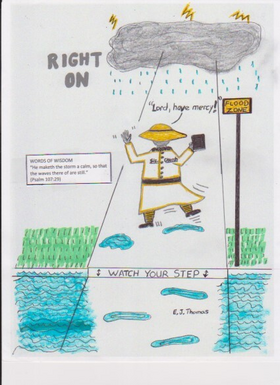 RIGHT
ON
"Lord, have mercy!"
FLOOD
ZONE
WORDS OF WISDOM
"He maketh the storm a calm, so that
the waves there of are still."
(Psalm 107:29)
WATCH YOUR STEP
E.J. Thomas